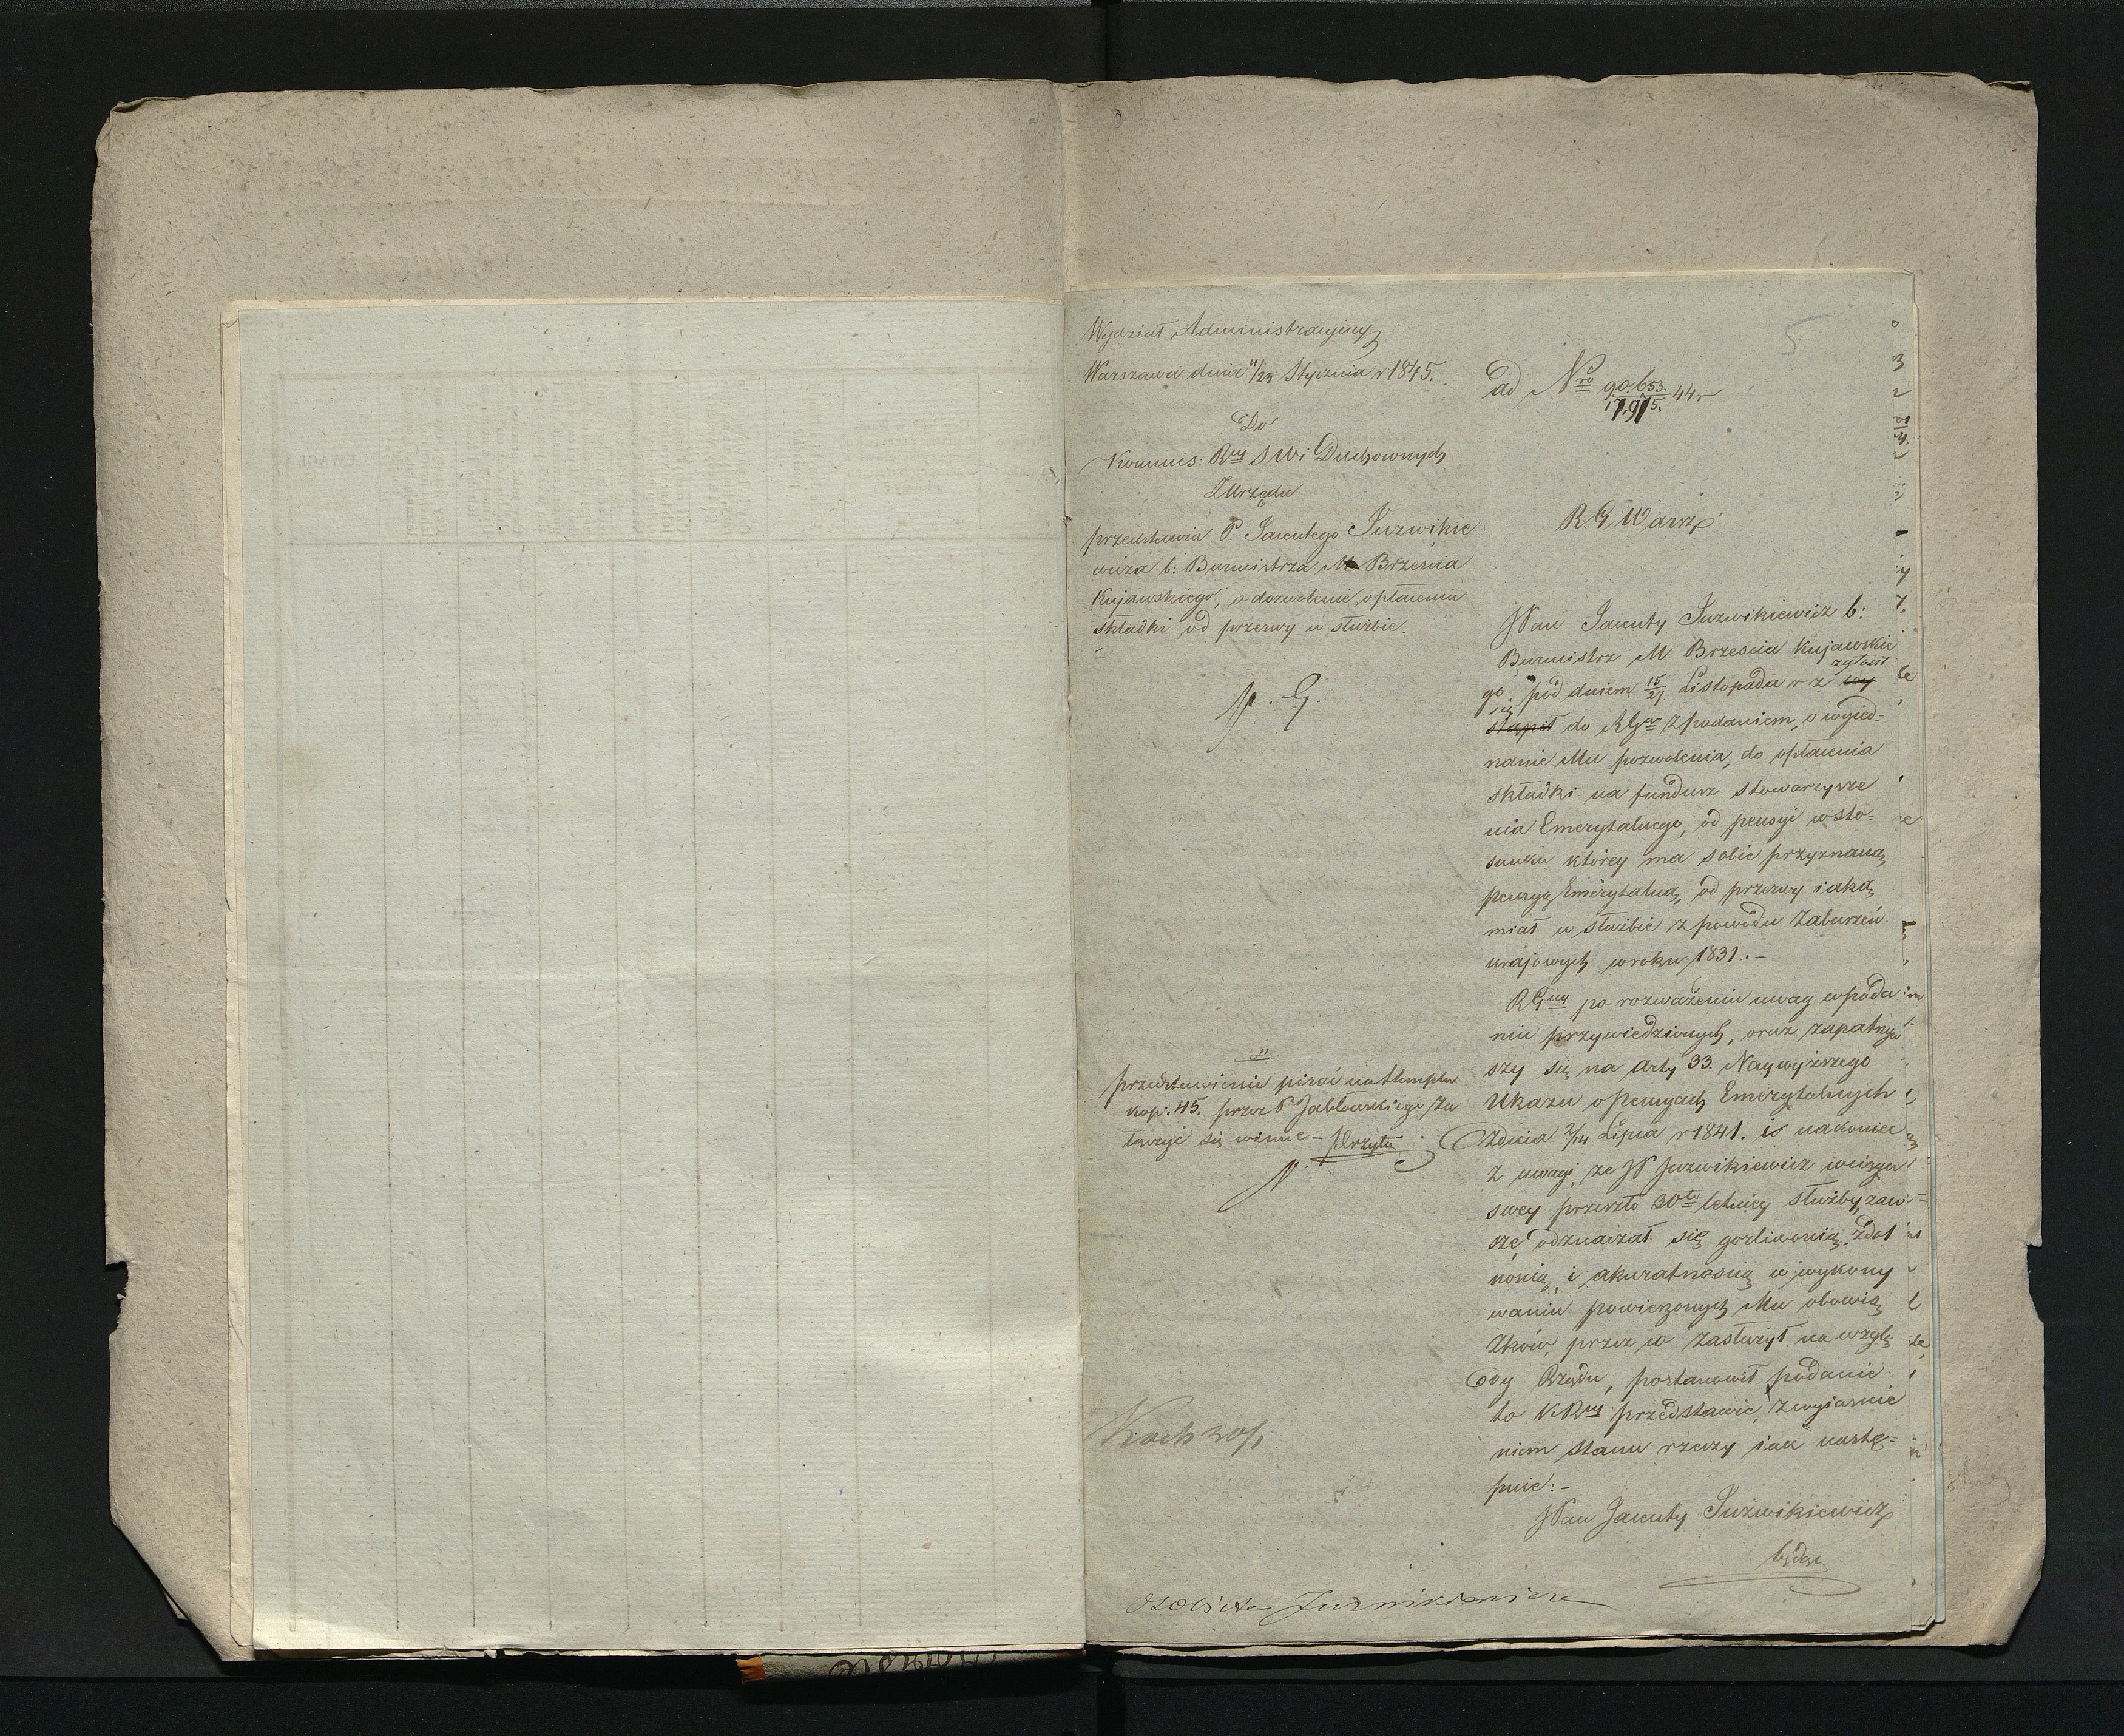 5
Wydział Administracyjny
Warszawa dnia 11/23 Stycznia r 1845.
Do
Kommis: Rwy S W i Duchownych
Z Urzędu
przedstawia P. Jacentego Juzwikie
wicza b: Burmistrza M Brześcia
Kujawskiego, o dozwolenie opłacenia
składki od przerwy w służbie.
N. G.
przedstawienie pisać na stemplu
kop. 45. przez P Jabłonskiego za
łączyć się winne –
ad Nro 90,653./17,975. 44r
R G Warsz:
JPan Jacenty Juzwikiewicz b:
Burmistrz M Brzescia Kujawskie
go, pod dniem 15/27 Listopada r z wy zgłosił
stąpił się do RGgo z podaniem, o wyied=
nanie Mu pozwolenia, do opłacenia
składki na fundusz Stowarzysze
nia Emerytalnego, od pensyi w sto=
sunku którey ma sobie przyznaną
pensyą Emerytalną, od przerwy iaką
miał w służbie z powodu Zaburzeń
krajowych w roku 1831. –
RGny po rozważeniu uwag w poda
niu przywiedzionych, oraz zapatrzyw
szy się na Arty 33. Naywyższego
Ukazu o Pensyach Emerytalnych
z dnia 2/14 Lipca r 1841. is nakoniec
z uwagi, ze JP Juzwikiewicz w ciągu
swey przeszło 30to letniey służby, zaw=
sze odznaczał się gorliwoscią, zdol
noscią, i akuratnoscią w wykony
waniu powierzonych Mu obowią
zków, przez co zasłużył na wzglę
dy Rządu, postanowił podanie
to KRwy przedstawić, z wyiasnie
niem stanu rzeczy iak nastę=
puie: –
JPan Jacenty Juzwikiewicz
będąc
Osobiste Juzwikiewicza